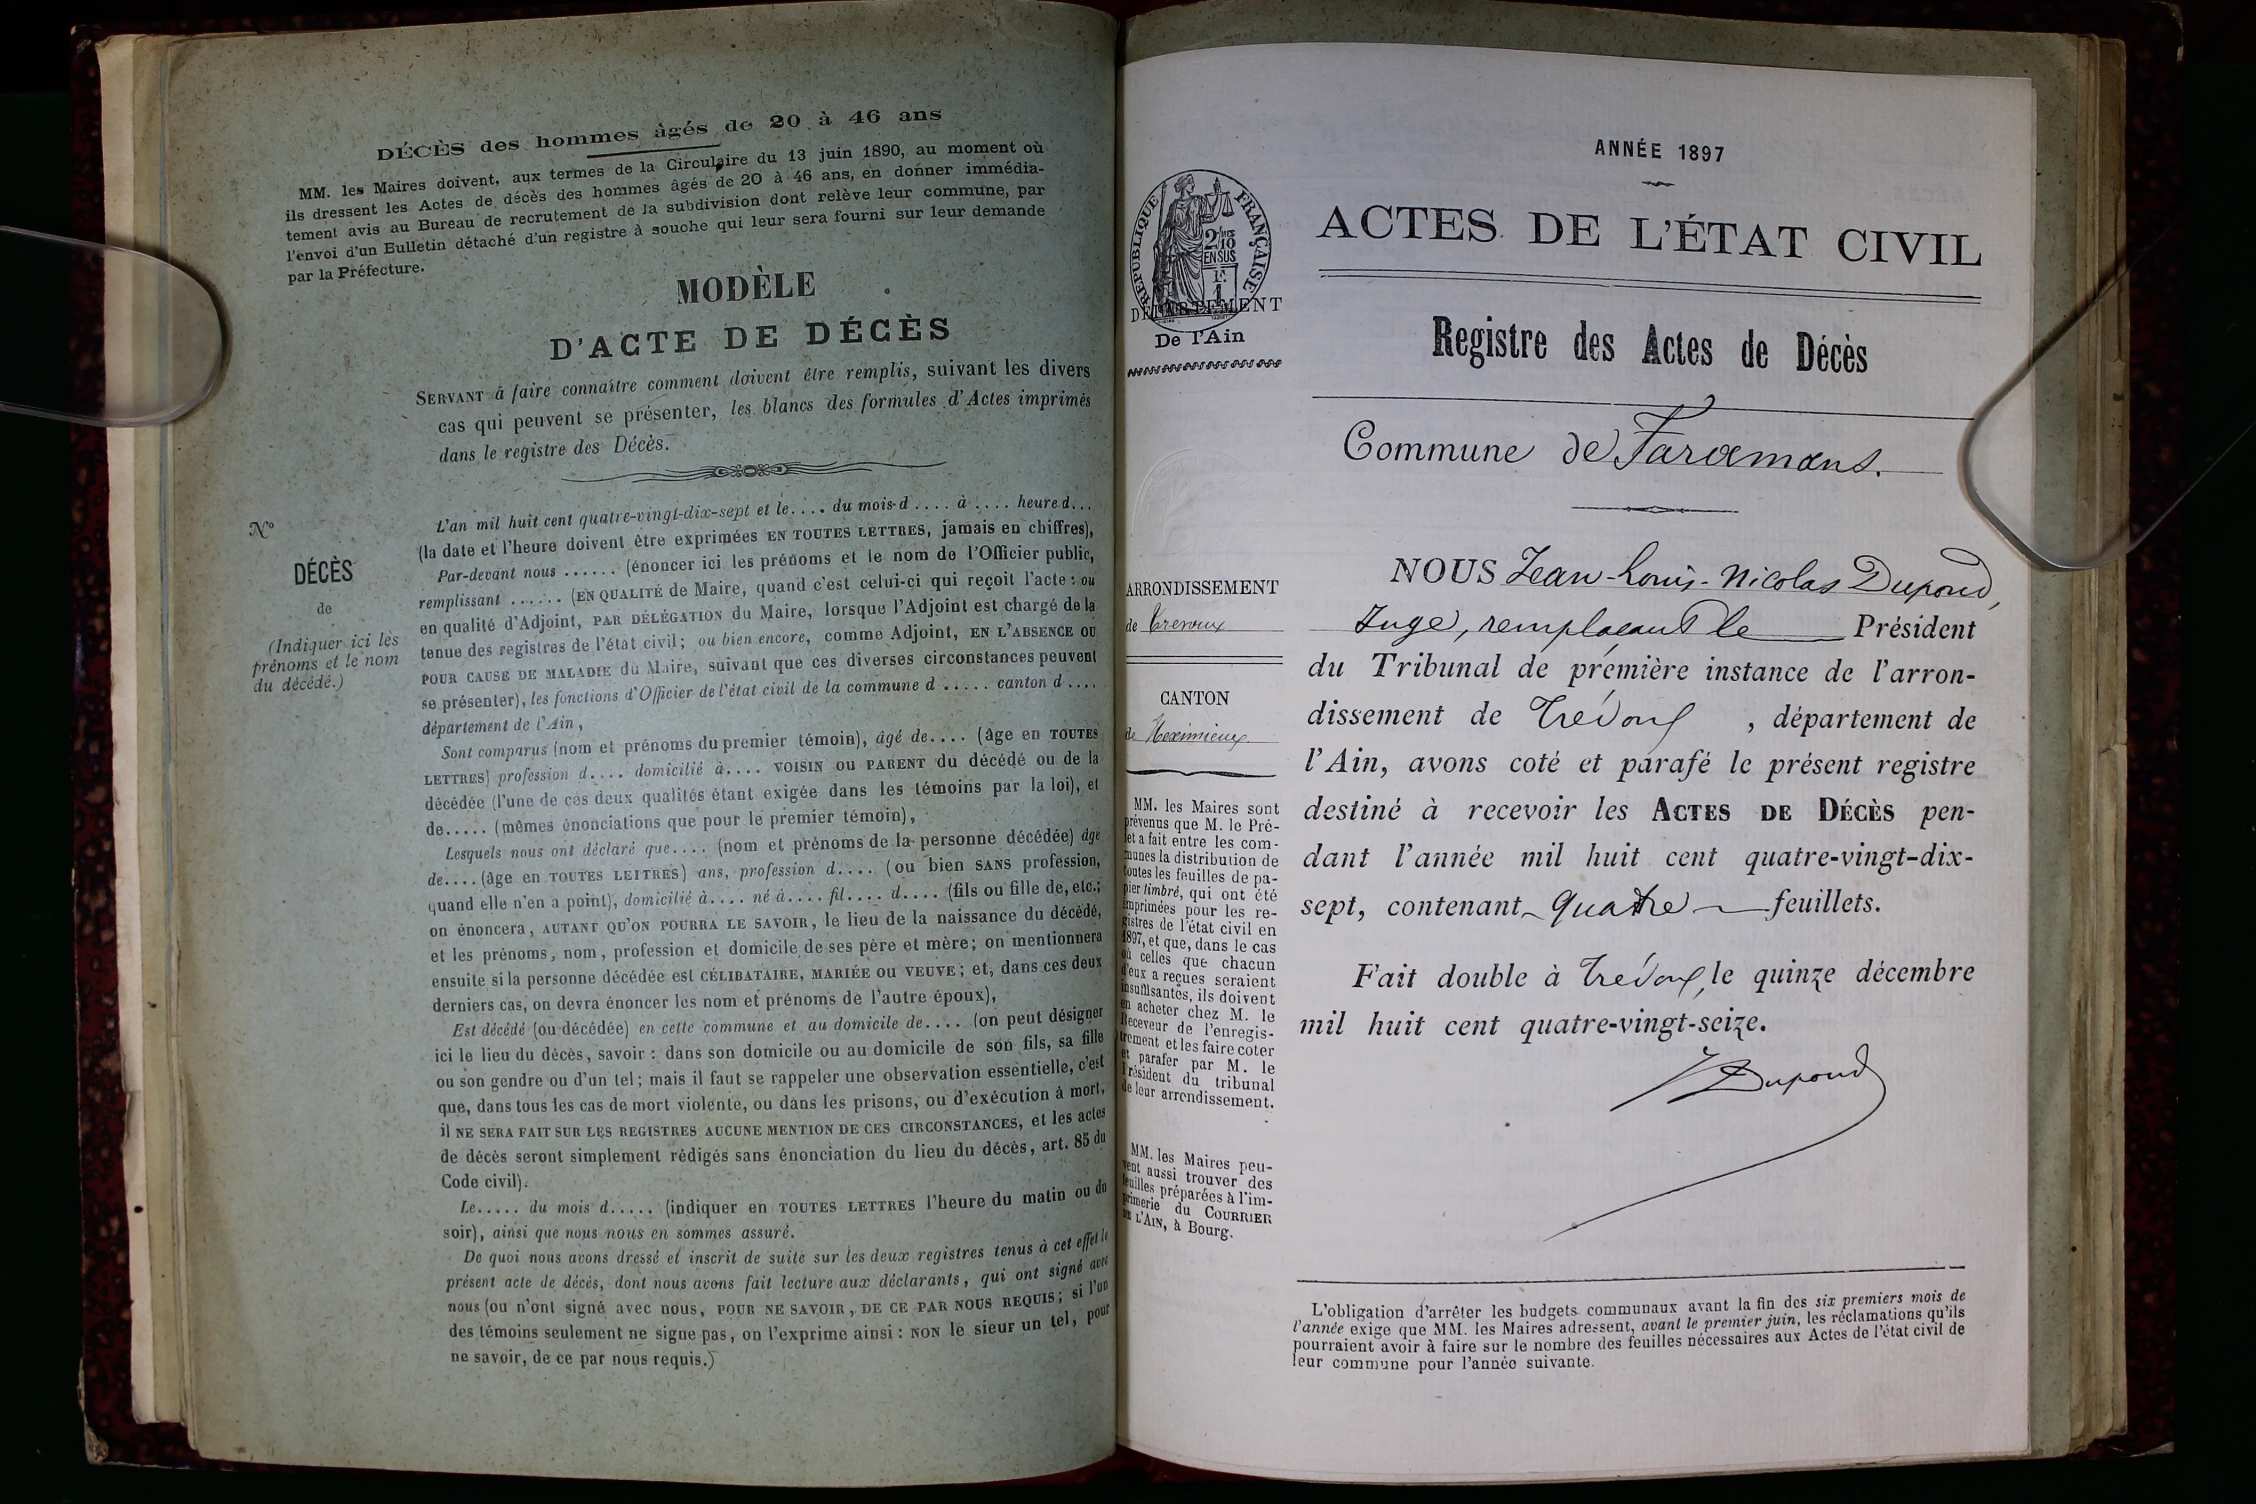 DÉCÈS des hommes âgés de 20 à 46 ans
MM. les Maires doivent, aux termes de la Circulaire du 13 juin 1890, au moment où
ils dressent les Actes de décès des hommes âgés de 20 à 46 ans, en donner immédia-
tement avis au Bureau de recrutement de la subdivision dont relève leur commune, par
l'envoi d'un Bulletin détaché d'un registre à souche qui leur sera fourni sur leur demande
par la Préfecture.
MODÈLE
D'ACTE DE DÉCÈS
SERVANT à faire connaître comment doivent être remplis, suivant les divers
cas qui peuvent se présenter, les blancs des formules d'Actes imprimés
dans le registre des Décès.
N°
DÉCÈS
de
(Indiquer ici les
prénoms et le nom
du décédé.)
L'an mil huit cent quatre-vingt-dix-sept et le.... du mois d.... à.... heure d...
(la date et l'heure doivent être exprimées EN TOUTES LETTRES, jamais en chiffres),
Par-devant nous ...... (énoncer ici les prénoms et le nom de l'Officier public,
remplissant ...... (EN QUALITÉ de Maire, quand c'est celui-ci qui reçoit l'acte : ou
en qualité d'Adjoint, PAR DÉLÉGATION du Maire, lorsque l'Adjoint est chargé de la
tenue des registres de l'état civil; ou bien encore, comme Adjoint, EN L'ABSENCE OU
POUR CAUSE DE MALADIE du Maire, suivant que ces diverses circonstances peuvent
se présenter), les fonctions d'Officier de l'état civil de la commune d ..... canton d ....
département de l'Ain,
Sont comparus (nom et prénoms du premier témoin), âgé de.... (âge en TOUTES
LETTRES) profession d.... domicilié à.... VOISIN OU PARENT du décédé ou de la
décédée (l'une de ces deux qualités étant exigée dans les témoins par la loi), et
de..... (mêmes énonciations que pour le premier témoin),
Lesquels nous ont déclaré que.... (nom et prénoms de la personne décédée) âgé
de.... (âge en TOUTES LETTRES) ans, profession d.... (ou bien SANS profession,
quand elle n'en a point), domicilié à.... né à.... fil.... d.... (fils ou fille de, etc.;
on énoncera, AUTANT QU'ON POURRA LE SAVOIR, le lieu de la naissance du décédé,
et les prénoms, nom, profession et domicile de ses père et mère; on mentionnera
ensuite si la personne décédée est CÉLIBATAIRE, MARIÉE OU VEUVE; et, dans ces deux
derniers cas, on devra énoncer les nom et prénoms de l'autre époux),
Est décédé (ou décédée) en cette commune et au domicile de.... (on peut désigner
ici le lieu du décès, savoir : dans son domicile ou au domicile de son fils, sa fille
ou son gendre ou d'un tel; mais il faut se rappeler une observation essentielle, c'est
que, dans tous les cas de mort violente, ou dans les prisons, ou d'exécution à mort,
il NE SERA FAIT SUR LES REGISTRES AUCUNE MENTION DE CES CIRCONSTANCES, et les actes
de décès seront simplement rédigés sans énonciation du lieu du décès, art. 85 du
Code civil).
Le..... du mois d..... (indiquer en TOUTES LETTRES l'heure du matin ou du
soir), ainsi que nous nous en sommes assuré.
De quoi nous avons dressé et inscrit de suite sur les deux registres tenus à cet effet le
présent acte de décès, dont nous avons fait lecture aux déclarants, qui ont signé avec
nous (ou n'ont signé avec nous, POUR NE SAVOIR, DE CE PAR NOUS REQUIS; si l'un
des témoins seulement ne signe pas, on l'exprime ainsi : NON le sieur un tel, pour
ne savoir, de ce par nous requis.)
RÉPUBLIQUE FRANÇAISE
2/10
EN SUS
1
DÉPARTEMENT
De l'Ain
ARRONDISSEMENT
de Trévoux
CANTON
de Meximieux
MM. les Maires sont
prévenus que M. le Pré-
fet a fait entre les com-
munes la distribution de
toutes les feuilles de pa-
pier timbré, qui ont été
imprimées pour les re-
gistres de l'état civil en
1897, et que, dans le cas
où celles que chacun
d'eux a reçues seraient
insuffisantes, ils doivent
en acheter chez M. le
Receveur de l'enregis-
trement et les faire coter
et parafer par M. le
Président du tribunal
de leur arrondissement.
MM. les Maires peu-
vent aussi trouver des
feuilles préparées à l'im-
primerie du COURRIER
DE L'AIN, à Bourg.
ANNÉE 1897
ACTES DE L'ÉTAT CIVIL
Registre des Actes de Décès
Commune de Faramans.
NOUS Jean-Louis-Nicolas Dupond,
Juge, remplaçant le Président
du Tribunal de première instance de l'arron-
dissement de Trévoux, département de
l'Ain, avons coté et parafé le présent registre
destiné à recevoir les ACTES DE DÉCÈS pen-
dant l'année mil huit cent quatre-vingt-dix-
sept, contenant quatre feuillets.
Fait double à Trévoux, le quinze décembre
mil huit cent quatre-vingt-seize.
Dupond
L'obligation d'arrêter les budgets communaux avant la fin des six premiers mois de
l'année exige que MM. les Maires adressent, avant le premier juin, les réclamations qu'ils
pourraient avoir à faire sur le nombre des feuilles nécessaires aux Actes de l'état civil de
leur commune pour l'année suivante.